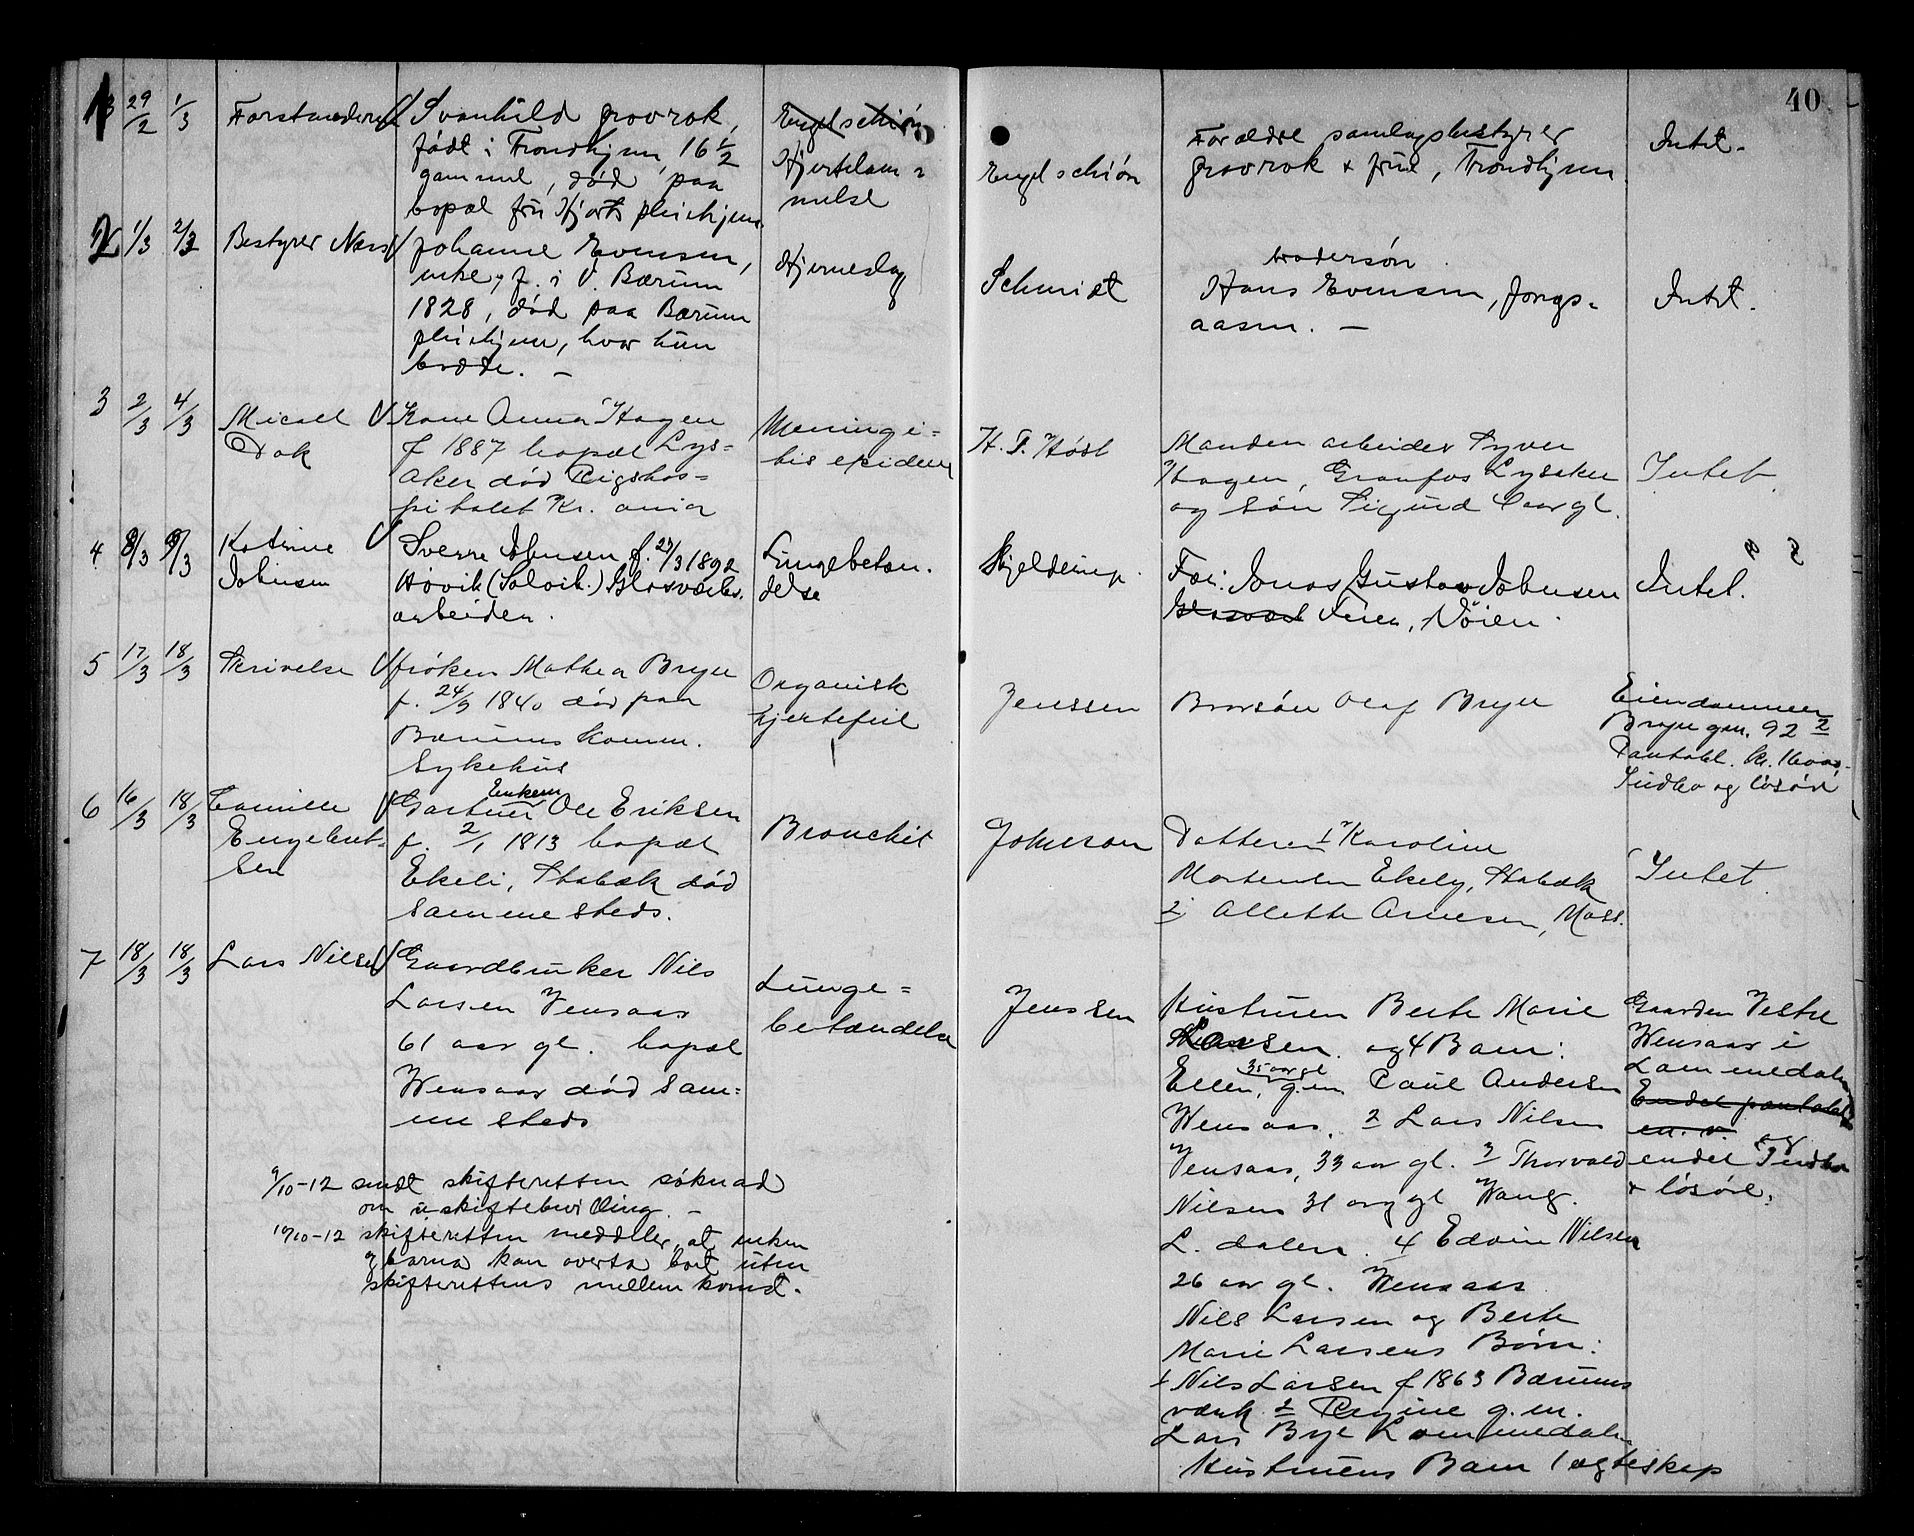 40
29/2 1/3 Forstanderen Svanhild Grovrok,
født i Trondhjem, 16 1/2
gammel, død paa
bopæl fru Hjorts pleiehjem.
Engelschiøn
Hjertelam=
melse
Engelschiøn
Forældre samlagsbestyrer
Grovrok & frue, Trondhjem
Intet.
2 1/3 2/3 Bestyrer Næss Johanne Evensen,
enke, f. i V. Bærum
1828, død paa Bærum
pleiehjem, hvor hun
bodde. —
Hjerneslag
Schmidt
brodersøn
Hans Evensen, Jongs=
aasen. —
Intet.
3 2/3 4/3 Micael
Dok
Kone Anna Hagen
f 1887 bopæl Lys=
aker død Rigshos=
pitalet Kr. ania
Meningi=
tis epidem
H. T. Høst
Manden arbeider Syver
Hagen, Granfos Lysaker
og søn Sigurd aar gl.
Intet
4. 8/3 9/3 Katrine
Johnsen
Sverre Johnsen f. 23/3 1892
Høvik (Solvik.) Glasværks.
arbeider.
Lungebetæn.
delse
Skjelderup.
Far: Jonas Gustav Johnsen
Glasværk Feier, Døien.
Intet.
5 17/3 18/3 Skrivelse frøken Mathea Bryn
f. 24/9 1840 død paa
Bærums komm.
Sykehus
Organisk
hjertefeil
Jenssen
Brorsøn Olaf Bryn
Eiendommen
Bryn gn. 92 2
Pantobl. kr. 1600,-
Indbo og løsøre
6 16/3 18/3 Camilla
Engebret=
sen
Enkem
Gartner Ole Eriksen
f. 2/1 1813 bopæl
Ekeli, Stabæk død
sammesteds.
Bronchit
Johnson
Datteren 1 Karoline
Mortensen Ekely, Stabæk
2 Allette Arnesen, Moss.
Intet.
7 18/3 18/3 Lars Nilsen Gaardbruker Nils
Larsen Vensaas
61 aar gl. bopæl
Wensaas død sam=
me steds
Lunge=
betændelse
Jenssen
Hustruen Berte Marie
Larsen. og 4 Barn:
35 aar gl
Ellen, g.m. Paul Andersen
Wensaas, 2 Lars Nilsen
Vensaas, 33 aar gl. 3 Thorvald
Nilsen 31 aar gl Wang.
L. dalen. 4 Edvin Nilsen
26 aar gl. Wensaas
Nils Larsen og Berte
Marie Larsens Børn:
1 Nils Larsen f 1863 Bærums
værk 2 Regine g. m.
Lars Bye Lommedalen
Hustruens Barn 1 ægteskap
Gaarden Vestre
Wensaas i
Lommedalen
Endel pantobl
m. v. og
endel Indbo
& løsøre.
9/10-12 sendt skifteretten søknad
om uskiftebevilling. —
17/10-12 skifteretten meddeler, at enken
og barna kan overta boet uten
skifterettens mellemkomst.